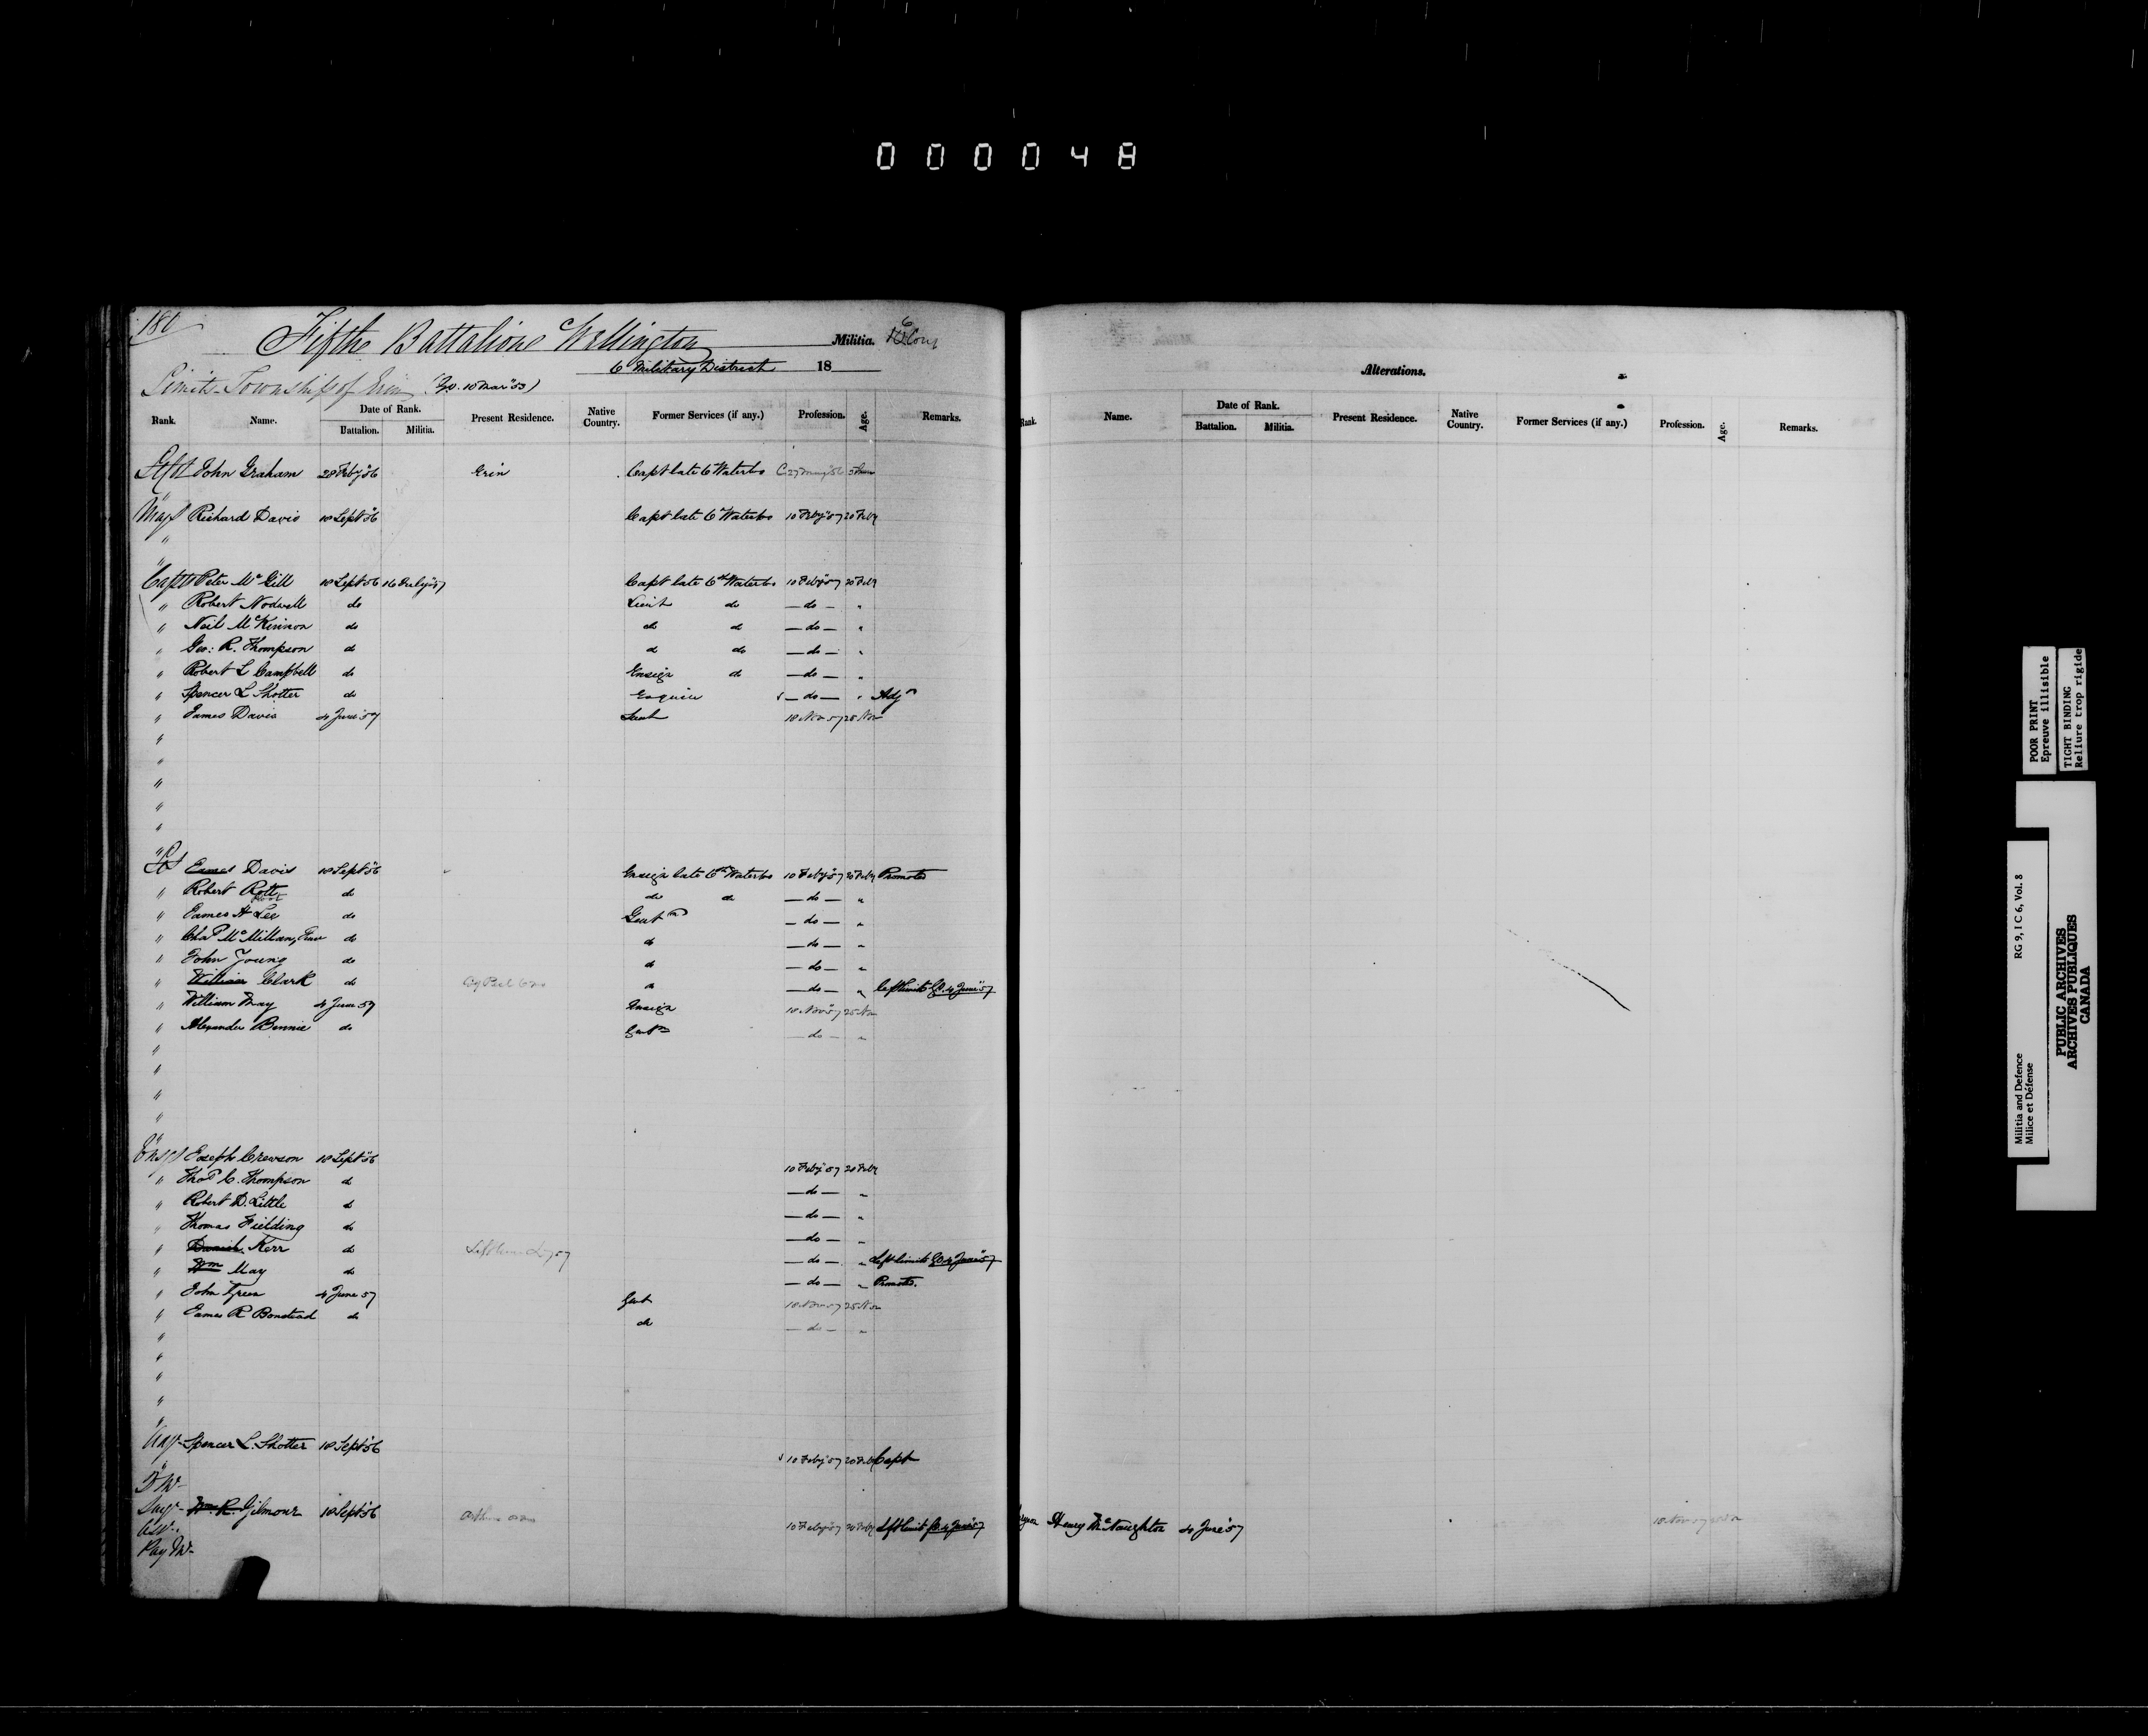 000048
180
Fifth Battalion Wellington Militia. 6
6 Military District 18
Limits - Township of Erin (GO. 10 Mar '53)
Rank. Name. Date of Rank. Battalion. Militia. Present Residence. Native Country. Former Services (if any.) Profession. Age. Remarks.
John Graham 28 Feby '56 Erin Capt late 6 Waterloo
Majs Richard Davis 18 Sept '56 Capt late 6 Waterloo 10 Feby '57 20 Feby
"
"
Capts Peter McGill 18 Sept '56 16 July '57 Capt late 6th Waterloo 10 Feby '57 20 Feby
" Robert Nodwell do Lieut do — do — "
" Neil McKinnon do do do — do — "
" Geo: R. Thompson do do do — do — "
" Robert L Campbell do Ensign do — do — "
" Spencer L Shotter do Esquire — do — " Adjt
" James Davis 4 June '57 Lieut 18 Nov 57 25 Nov
"
"
"
"
"
"
Lts James Davis 18 Sept '56 Ensign late 6th Waterloo 10 Feby '57 20 Feby Promoted
" Robert Rott do do do — do — "
" James H Lee do Gentn — do — "
" Chas McMillan, do do — do — "
" John Young do do — do — "
" William Clark do do — do — " Left limits GO. 4 June '57
" William May 4 June 57 Ensign 18 Nov 57 25 Nov
" Alexander Binnie do Gentn — do — "
"
"
"
"
"
Ensgs Joseph Crewson 18 Sept '56 10 Feby 57 20 Feby
" Thos C. Thompson do — do — "
" Robert D. Little do — do — "
" Thomas Fielding do — do — "
" Daniel Kerr do — do — " Left limits GO 4 June '57
" Wm May do — do — " Promoted.
" John Green 4 June 57 Gent 18 Nov 57 25 Nov
" James R Bonstead do do — do — "
"
"
"
"
"
Spencer L. Shotter 18 Sept '56 10 Feby '57 20 Feby Capt
"
Qr Mr
Surgn Wm R. Gilmour 18 Sept '56 10 Feby '57 20 Feby Left limits GO. 4 June '57
Pay Mr
Alterations.
Rank. Name. Date of Rank. Battalion. Militia. Present Residence. Native Country. Former Services (if any.) Profession. Age. Remarks.
Henry McNaughton 4 June '57 18 Nov 57
POOR PRINT
Epreuve illisible
TIGHT BINDING
Reliure trop rigide
Militia and Defence RG 9, I C 6, Vol. 8
Milice et Défense
PUBLIC ARCHIVES
ARCHIVES PUBLIQUES
CANADA